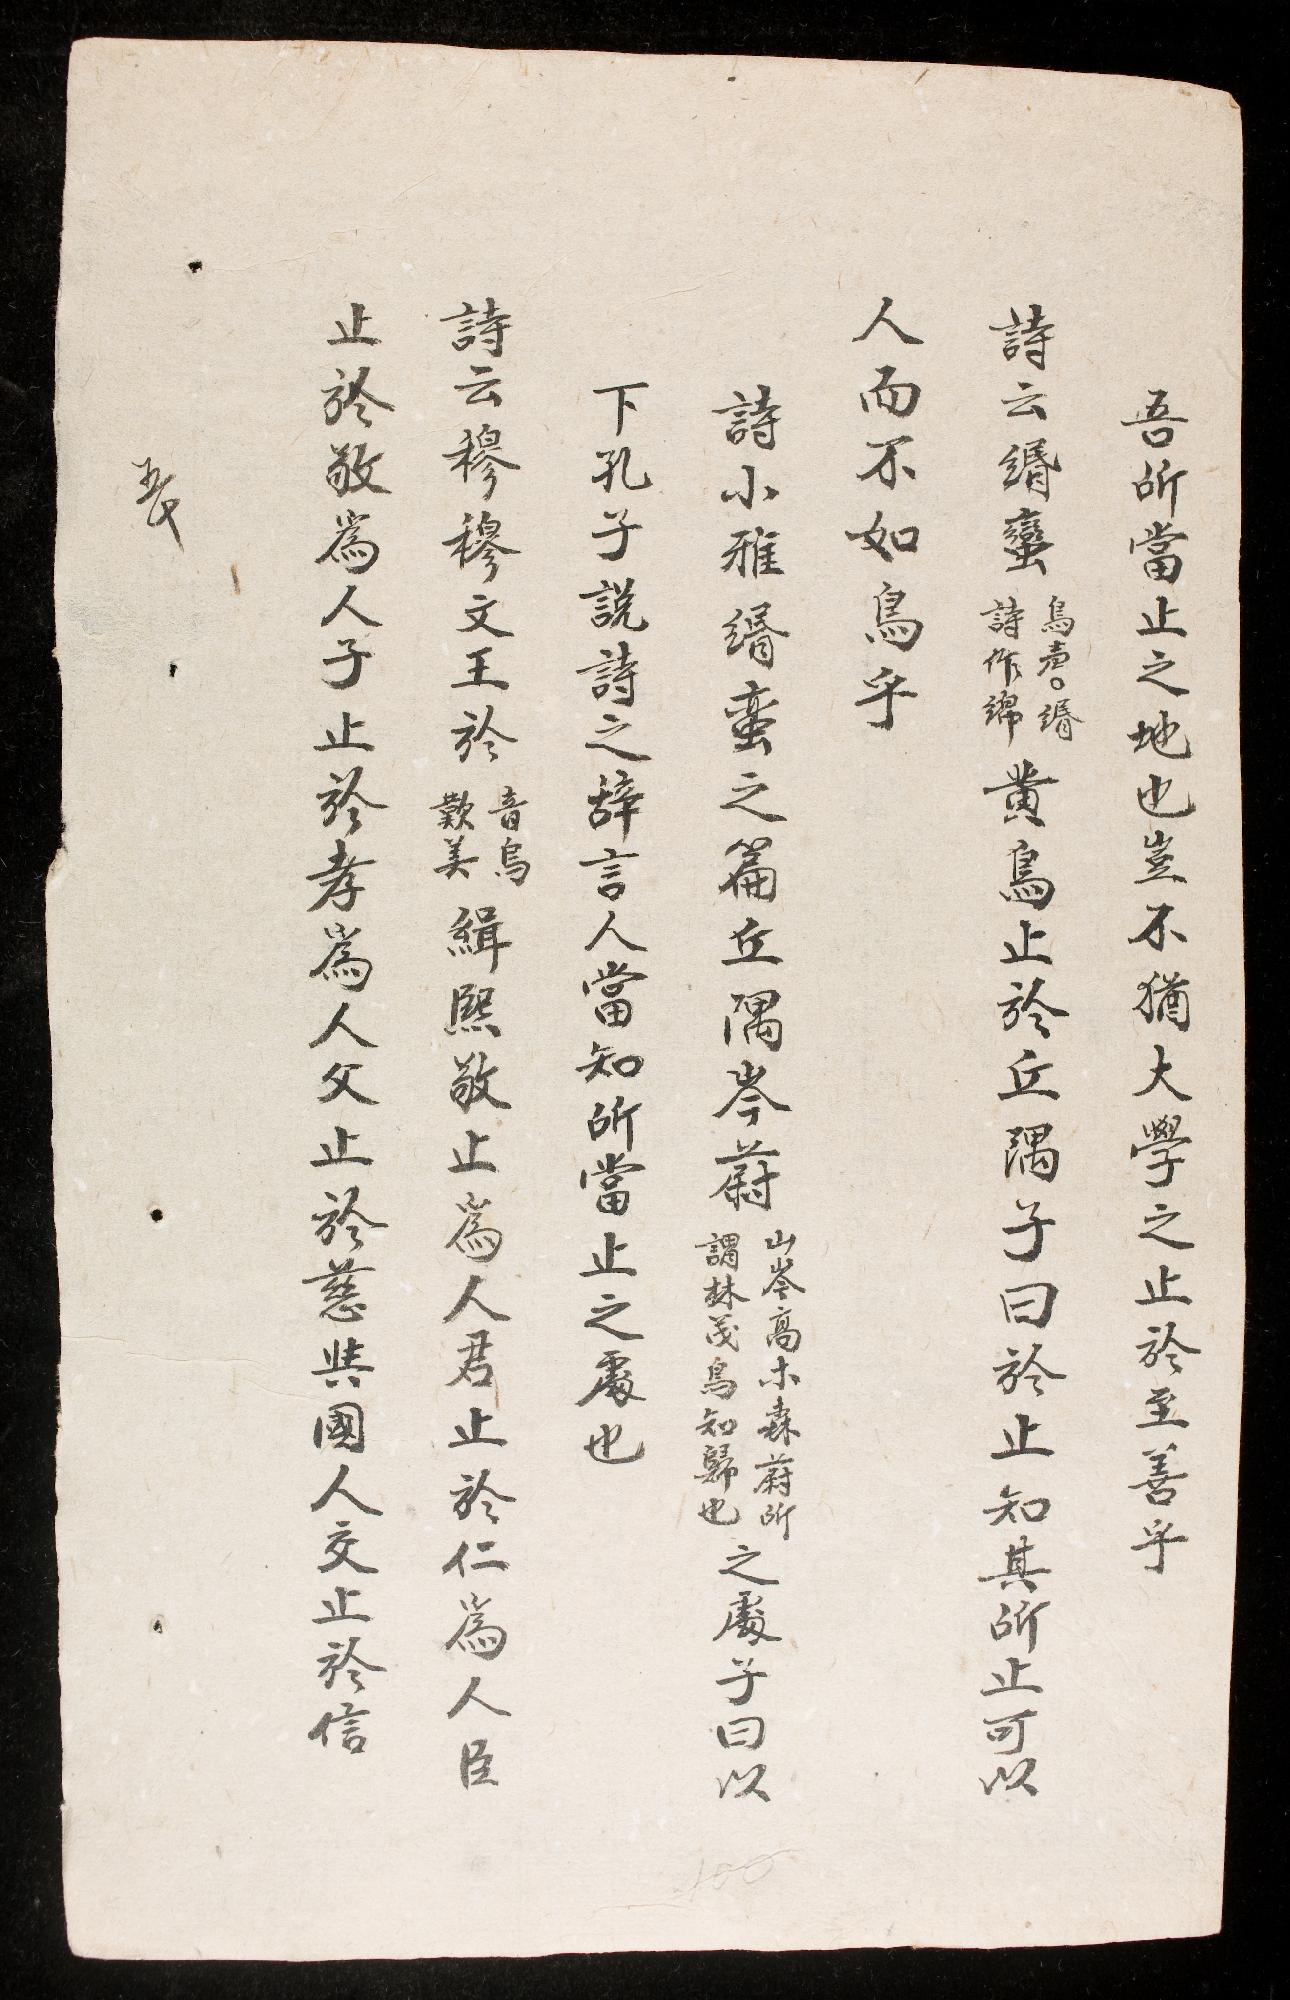 吾所當止之地也豈不猶大學之止於至善乎
詩云緡蠻鳥声。緡詩作綿黄鳥止於丘隅子曰於止知其所止可以
人而不如鳥乎
詩小雅緡蛮之篇丘隅岑蔚山岑高木森蔚所謂林茂鳥知歸也之處子曰以
下孔子説詩之辞言人當知所當止之處也
詩云穆穆文王於音烏歎美緝熙敬止爲人君止於仁爲人臣
止於敬爲人子止於孝爲人父止於慈與國人交止於信
100